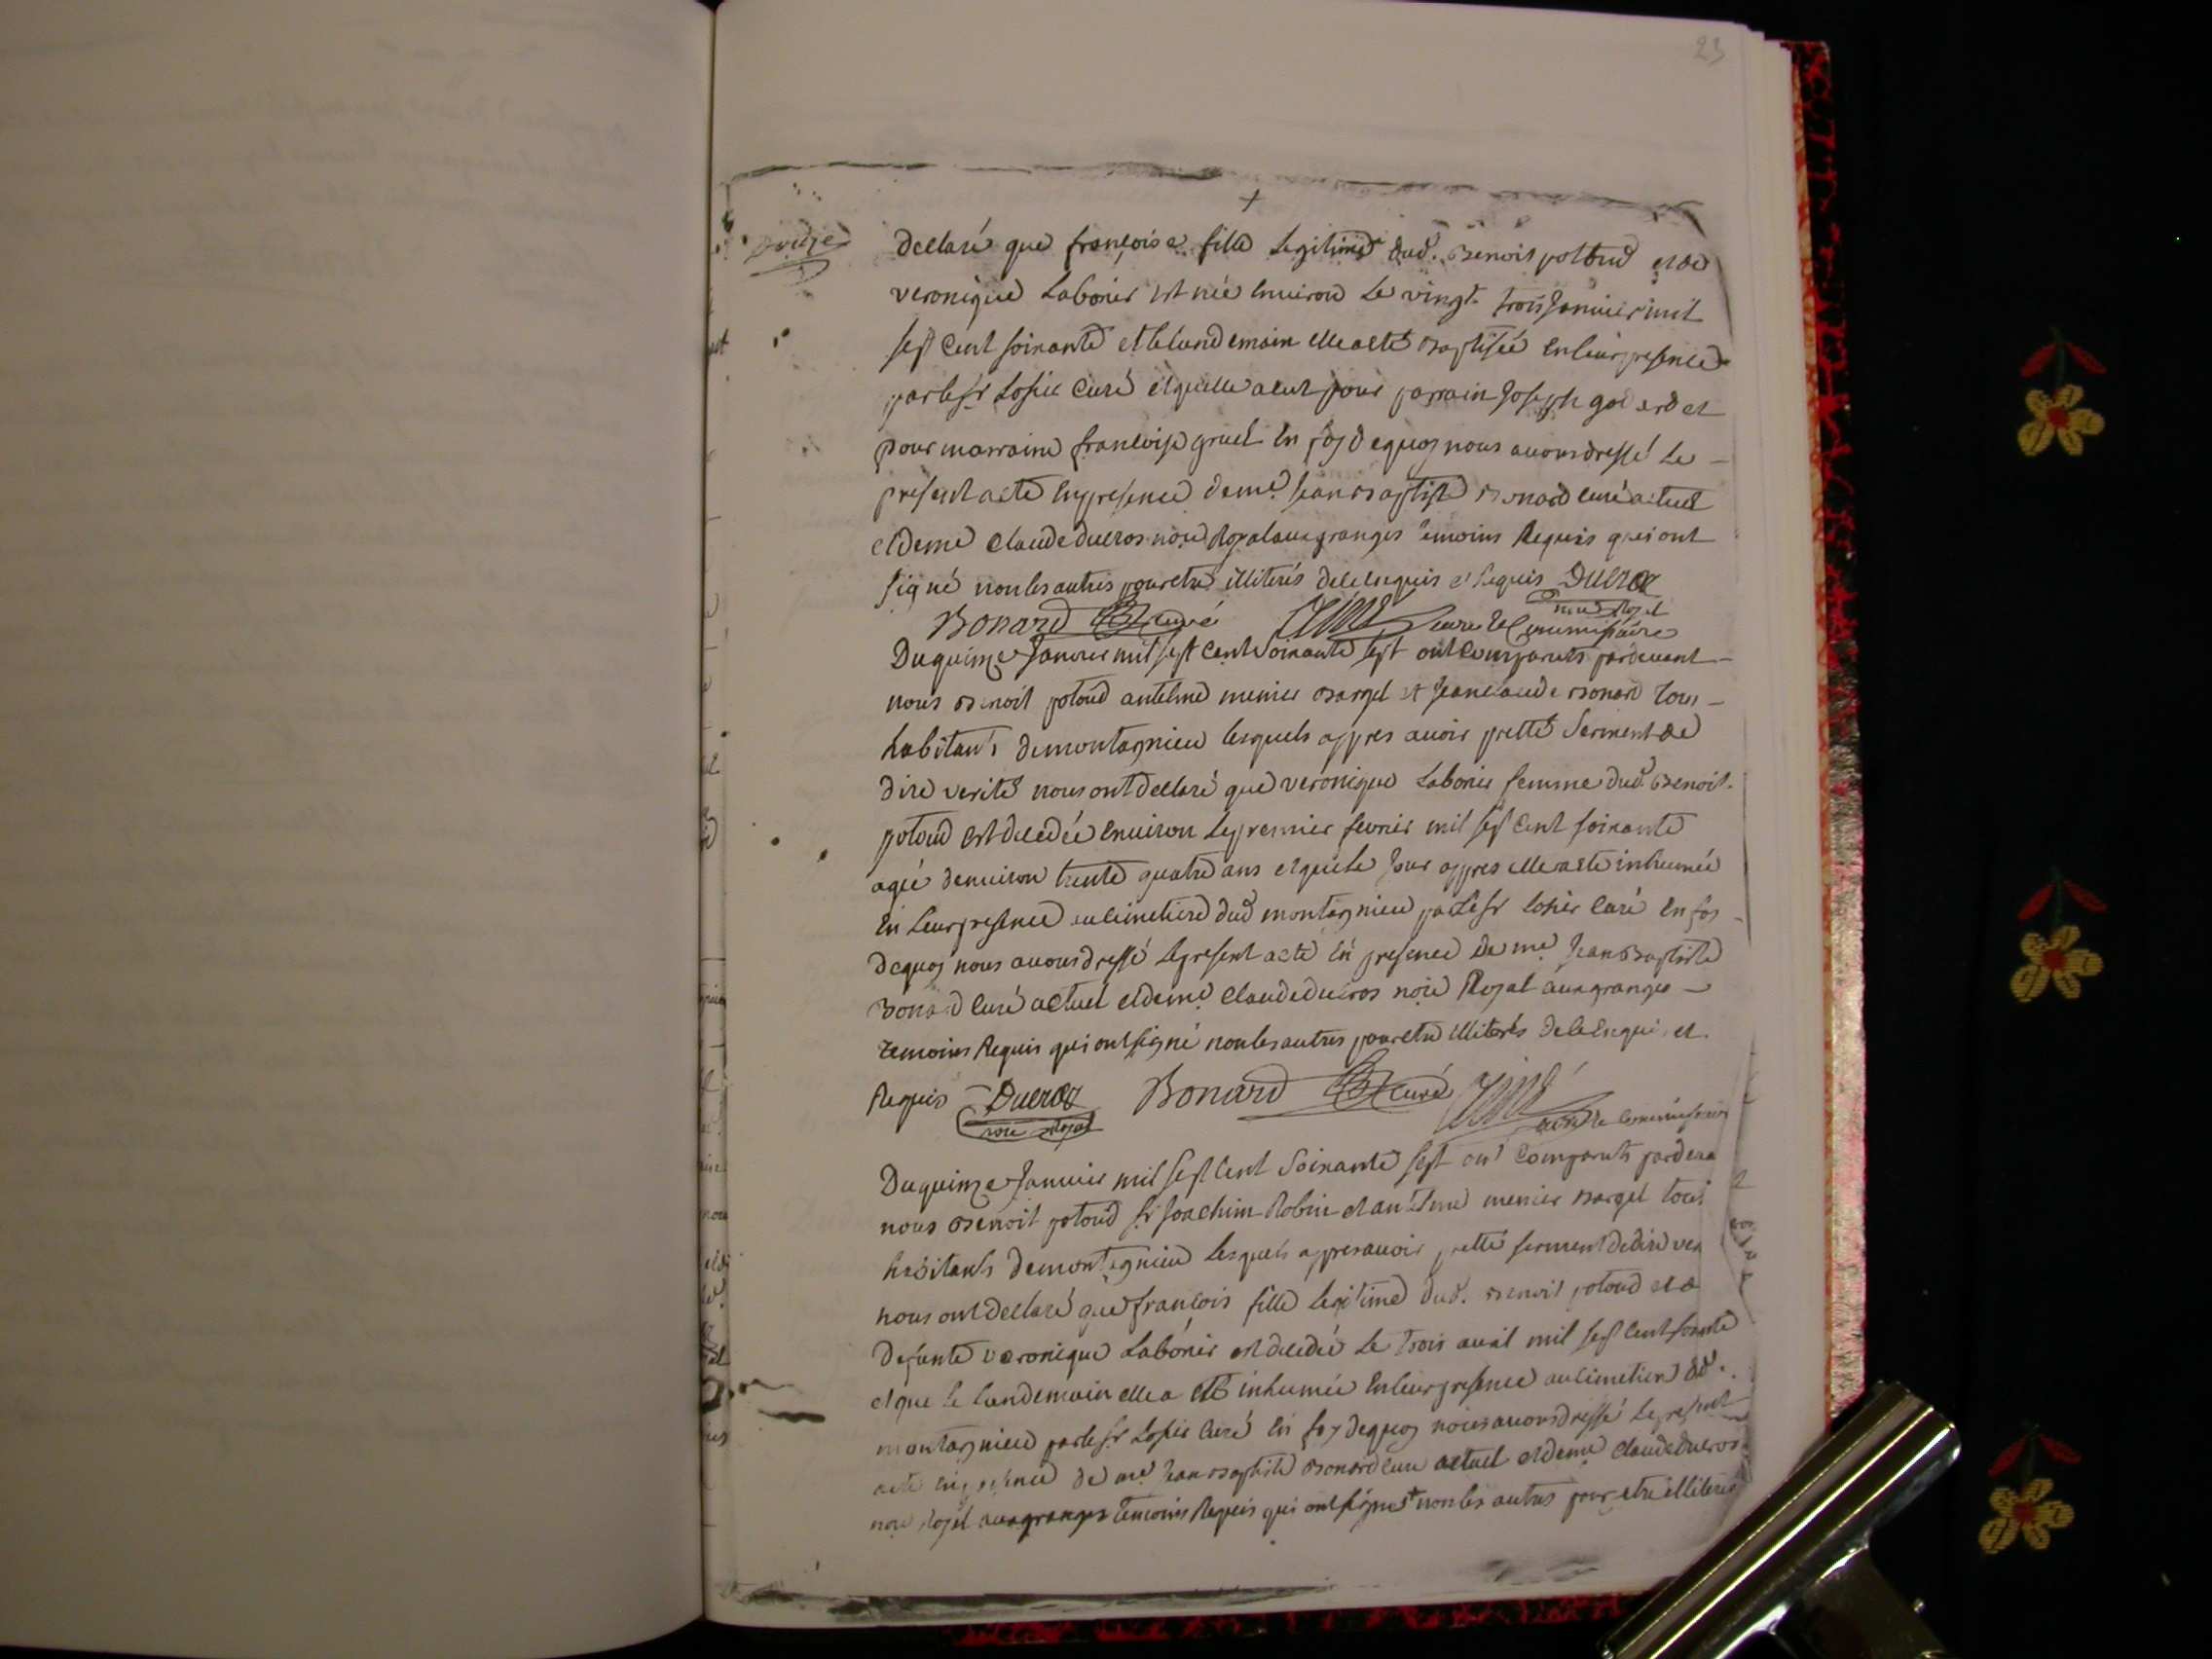 23
declaré que françoise fille legitime dud. Benoit potoud et de
veronique Laborier est née environ le vingt trois Janvier mil
sept cent soixante et le landemain elle a eté baptisée en leur presence
par le Sr Losier curé et quelle a eut pour parrain Joseph et
pour marraine francoise gruel en foy dequoy nous avons dressé le
present acte en presence de me. Jean baptiste Bonard curé actuel
et de me Claude ducros noire Royal aux granges temoins Requis qui ont
signé non les autres pour etre illiterés de ce enquis et Requis Ducros
noire Royal
Bonard curé curé et Commissaire
Du quinze Janvier mil sept cent soixante sept ont comparuts pardevant
nous Benoit potoud antelme menier bargel et Jean claude Bonard tous
habitants de montagnieu lesquels appres avoir pretté serment de
dire verité nous ont declaré que veronique Laborier femme dud. Benoit
potoud est decedée environ le premier fevrier mil sept cent soixante
agée denviron trente quatre ans et que le Jour appres elle a eté inhumée
en leur presence au cimetiere dud montagnieu par le Sr losier curé en foy
dequoy nous avons dressé le present acte en presence de me. Jean Baptiste
Bonard curé actuel et de me Claude ducros noire Royal aux granges
temoins Requis qui ont signé non les autres pour etre illiterés de ce enquis et
Requis Ducros Bonard curé
noire Royal curé et commissaire
Du quinze Janvier mil sept cent soixante sept ont comparuts pardeva
nous Benoit potoud Sr Joachim Robin et antelme menier bargel tous
habitants de montagnieu lesquels appres avoir pretté serment de dire ver
nous ont declaré que francois fille legitime dud. Benoit potoud et de
defunte veronique Laborier est decedée le trois avril mil sept cent soixante
et que le landemain elle a eté inhumée en leur presence au cimetiere dud.
montagnieu par le Sr Losier curé en foy dequoy nous avons dressé le present
acte en presence de me Jean baptiste Bonard curé actuel et de me Claude ducros
noire Royal aux granges temoins Requis qui ont signé + non les autres pour etre illiterés